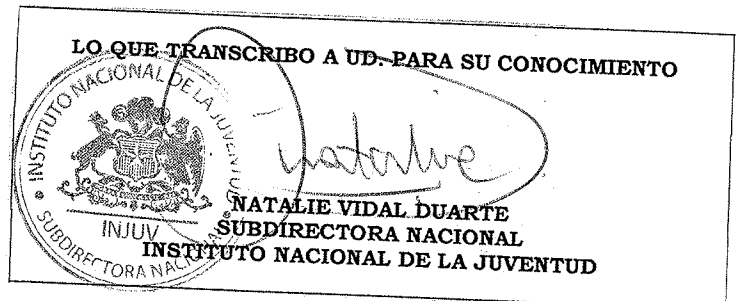 LO QUE TRANSCRIBO A UD. PARA SU CONOCIMIENTO
INSTITUTO NACIONAL DE LA JUVENTUD
INJUV
SUBDIRECTORA NACIONAL
NATALIE VIDAL DUARTE
SUBDIRECTORA NACIONAL
INSTITUTO NACIONAL DE LA JUVENTUD